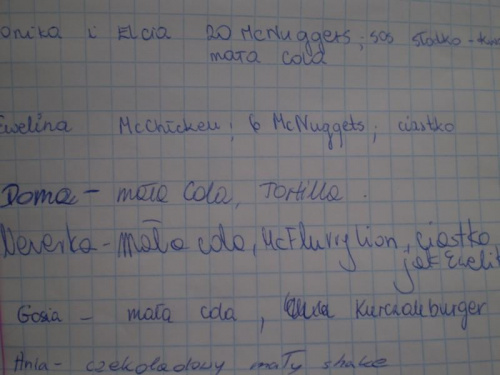 onika i Elcia 20 McNuggets; sos słodko-kwa
mała cola
Ewelina McChicken; 6 McNuggets; ciastko
Doma - mała cola, Tortilla.
mała cola, McFlurry lion, ciastko
jak Eweli
Gosia - mała cola, Kurczakburger
Ania - czekoladowy mały shake